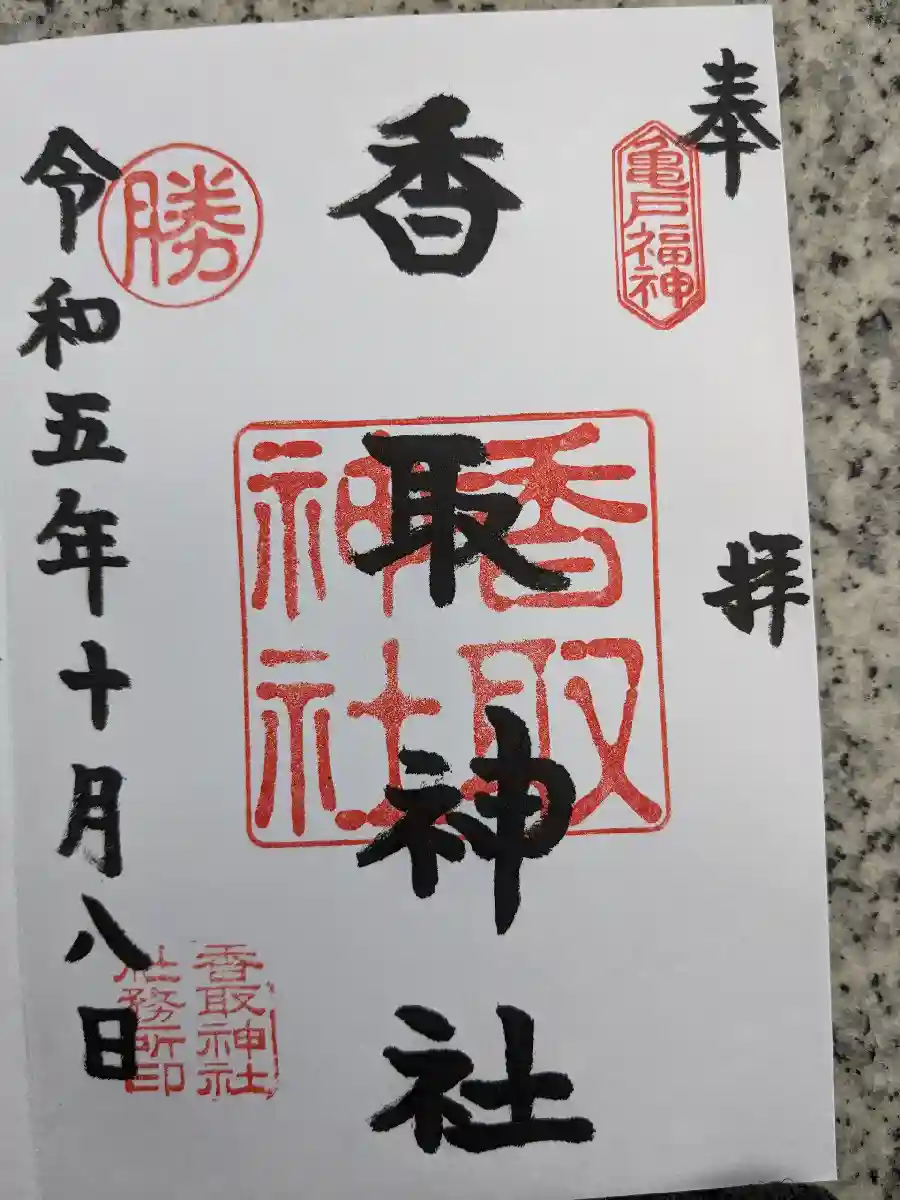 奉拝
亀戸福神
香取神社
香取
神社
勝
令和五年十月八日
香取神社
社務所印